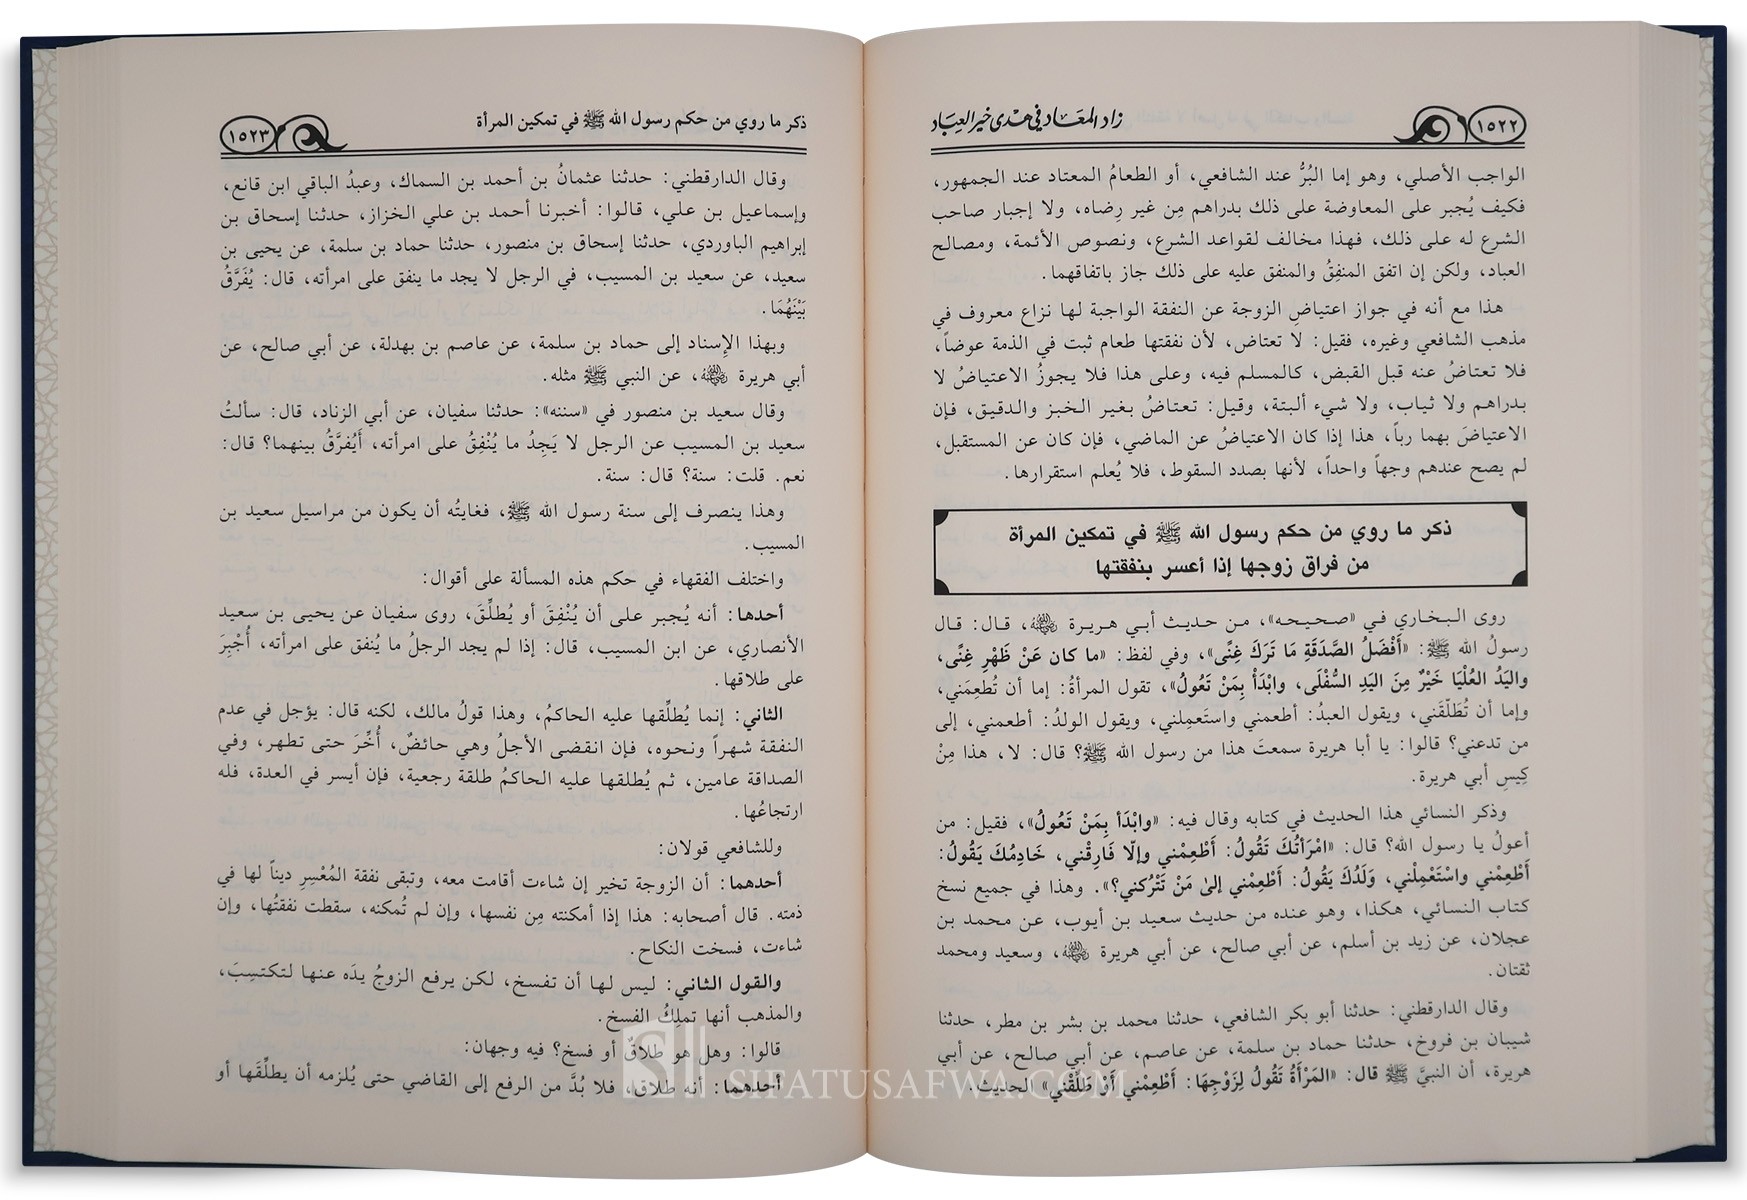 ١٥٢٢
زاد المعاد في هدى خير العباد
الواجب الأصلي، وهو إما البُرُّ عند الشافعي، أو الطعامُ المعتاد عند الجمهور،
فكيف يُجبر على المعاوضة على ذلك بدراهم مِن غير رِضاه، ولا إجبار صاحب
الشرع له على ذلك، فهذا مخالف لقواعد الشرع، ونصوص الأئمة، ومصالح
العباد، ولكن إن اتفق المنفِقُ والمنفق عليه على ذلك جاز باتفاقهما.
هذا مع أنه في جواز اعتياضِ الزوجة عن النفقة الواجبة لها نزاع معروف في
مذهب الشافعي وغيره، فقيل: لا تعتاض، لأن نفقتها طعام ثبت في الذمة عوضاً،
فلا تعتاضُ عنه قبل القبض، كالمسلم فيه، وعلى هذا فلا يجوزُ الاعتياضُ لا
بدراهم ولا ثياب، ولا شيء ألبتة، وقيل: تعتاضُ بغير الخبز والدقيق، فإن
الاعتياضَ بهما رباً، هذا إذا كان الاعتياضُ عن الماضي، فإن كان عن المستقبل،
لم يصح عندهم وجهاً واحداً، لأنها بصدد السقوط، فلا يُعلم استقرارها.
ذكر ما روي من حكم رسول الله ﷺ في تمكين المرأة
من فراق زوجها إذا أعسر بنفقتها
روى البخاري في «صحيحه»، من حديث أبي هريرة رضي الله عنه، قال: قال
رسولُ الله ﷺ: «أَفْضَلُ الصَّدَقَةِ مَا تَرَكَ غِنًى»، وفي لفظ: «ما كان عَنْ ظَهْرِ غِنًى،
واليَدُ العُلْيَا خَيْرٌ مِنَ اليَدِ السُّفْلَى، وابْدَأْ بِمَنْ تَعُولُ»، تقول المرأةُ: إما أن تُطعِمَني،
وإما أن تُطَلِّقَني، ويقول العبدُ: أطعمني واستَعمِلني، ويقول الولدُ: أطعمني، إلى
من تدعني؟ قالوا: يا أبا هريرة سمعتَ هذا من رسول الله ﷺ؟ قال: لا، هذا مِنْ
كِيسِ أبي هريرة.
وذكر النسائي هذا الحديث في كتابه وقال فيه: «وابْدَأ بِمَنْ تَعُولُ»، فقيل: من
أعولُ يا رسول الله؟ قال: «امْرَأَتُكَ تَقُولُ: أَطْعِمْني وإلّا فَارِقْني، خَادِمُكَ يَقُولُ:
أَطْعِمْني واسْتَعْمِلْني، وَلَدُكَ يَقُولُ: أَطْعِمْني إلىٰ مَنْ تَتْرُكني؟». وهذا في جميع نسخ
كتاب النسائي، هكذا، وهو عنده من حديث سعيد بن أيوب، عن محمد بن
عجلان، عن زيد بن أسلم، عن أبي صالح، عن أبي هريرة رضي الله عنه، وسعيد ومحمد
ثقتان.
وقال الدارقطني: حدثنا أبو بكر الشافعي، حدثنا محمد بن بشر بن مطر، حدثنا
شيبان بن فروخ، حدثنا حماد بن سلمة، عن عاصم، عن أبي صالح، عن أبي
هريرة، أن النبيَّ ﷺ قال: «المَرْأَةُ تَقُولُ لِزَوْجِهَا: أَطْعِمْني أَوْ طَلِّقْني» الحديث.
ذكر ما روي من حكم رسول الله ﷺ في تمكين المرأة
١٥٢٣
وقال الدارقطني: حدثنا عثمانُ بن أحمد بن السماك، وعبدُ الباقي ابن قانع،
وإسماعيل بن علي، قالوا: أخبرنا أحمد بن علي الخزاز، حدثنا إسحاق بن
إبراهيم الباوردي، حدثنا إسحاق بن منصور، حدثنا حماد بن سلمة، عن يحيى بن
سعيد، عن سعيد بن المسيب، في الرجل لا يجد ما ينفق على امرأته، قال: يُفَرَّقُ
بَيْنَهُمَا.
وبهذا الإسناد إلى حماد بن سلمة، عن عاصم بن بهدلة، عن أبي صالح، عن
أبي هريرة رضي الله عنه، عن النبي ﷺ مثله.
وقال سعيد بن منصور في «سننه»: حدثنا سفيان، عن أبي الزناد، قال: سألتُ
سعيد بن المسيب عن الرجل لا يَجِدُ ما يُنْفِقُ على امرأته، أَيُفرَّقُ بينهما؟ قال:
نعم. قلت: سنة؟ قال: سنة.
وهذا ينصرف إلى سنة رسول الله ﷺ، فغايتُه أن يكون من مراسيل سعيد بن
المسيب.
واختلف الفقهاء في حكم هذه المسألة على أقوال:
أحدها: أنه يُجبر على أن يُنْفِقَ أو يُطلِّقَ، روى سفيان عن يحيى بن سعيد
الأنصاري، عن ابن المسيب، قال: إذا لم يجد الرجلُ ما يُنفق على امرأته، أُجْبِرَ
على طلاقها.
الثاني: إنما يُطلِّقها عليه الحاكمُ، وهذا قولُ مالك، لكنه قال: يؤجل في عدم
النفقة شهراً ونحوه، فإن انقضى الأجلُ وهي حائضٌ، أُخِّرَ حتى تطهر، وفي
الصداقة عامين، ثم يُطلقها عليه الحاكمُ طلقة رجعية، فإن أيسر في العدة، فله
ارتجاعُها.
وللشافعي قولان:
أحدهما: أن الزوجة تخير إن شاءت أقامت معه، وتبقى نفقة المُعْسِرِ ديناً لها في
ذمته. قال أصحابه: هذا إذا أمكنته مِن نفسها، وإن لم تُمكنه، سقطت نفقتُها، وإن
شاءت، فسخت النكاح.
والقول الثاني: ليس لها أن تفسخ، لكن يرفع الزوجُ يدَه عنها لتكتسِبَ،
والمذهب أنها تملِكُ الفسخ.
قالوا: وهل هو طلاقٌ أو فسخ؟ فيه وجهان:
أحدهما: أنه طلاق، فلا بُدَّ من الرفع إلى القاضي حتى يُلزمه أن يطلِّقَها أو
SIFATUSAFWA.COM